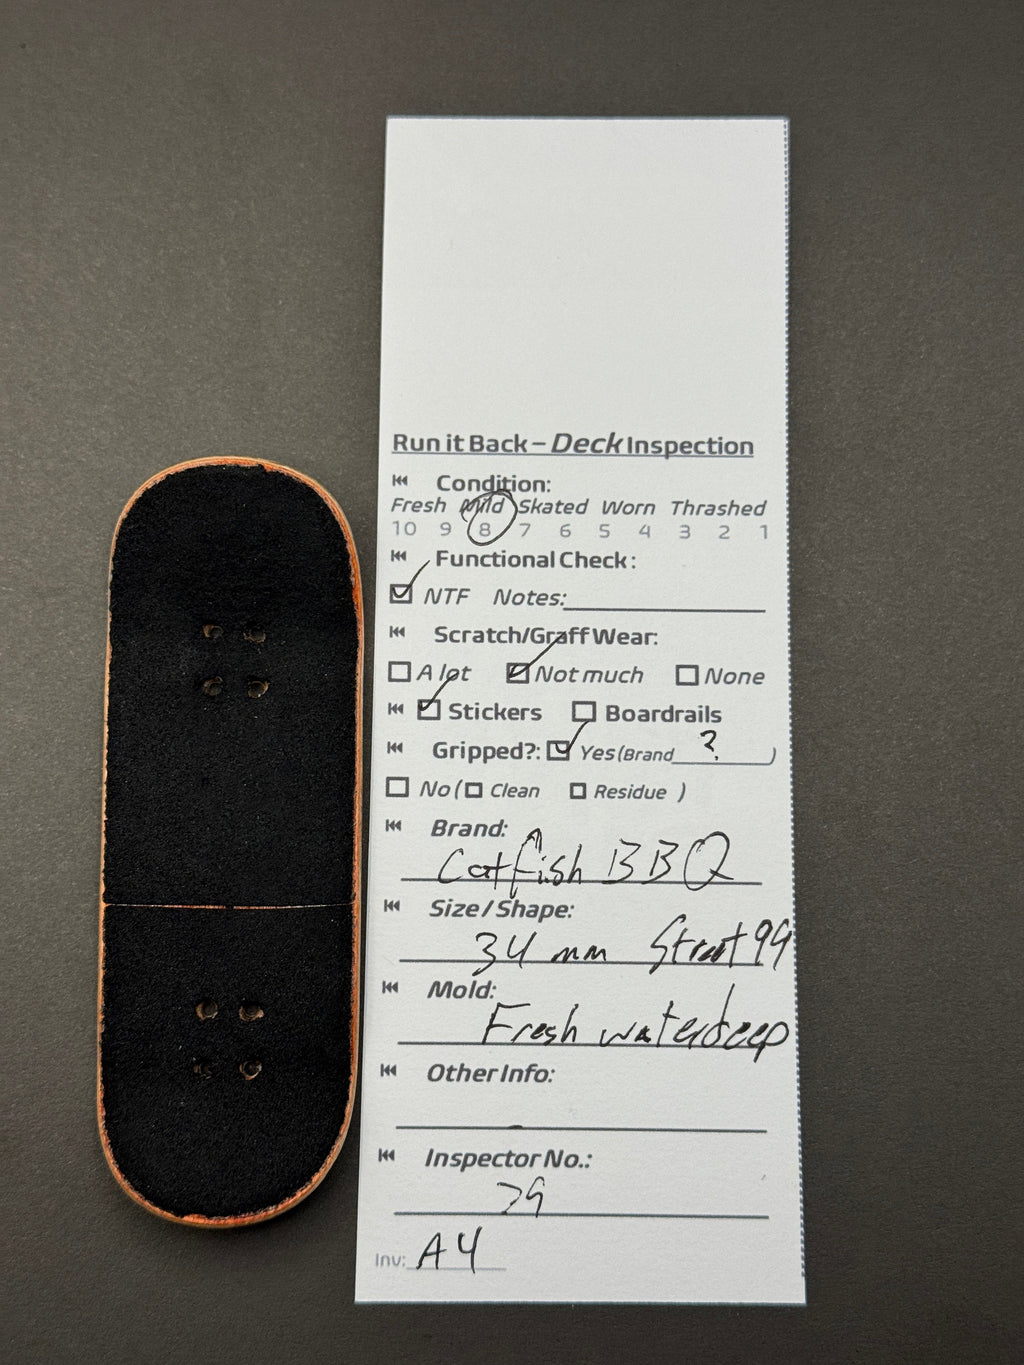 Run it Back – Deck Inspection
Condition:
Fresh Mild Skated Worn Thrashed
10 9 8 7 6 5 4 3 2 1
Functional Check:
NTF Notes:
Scratch/Graff Wear:
A lot Not much None
Stickers Boardrails
Gripped?: Yes (Brand ? )
No ( Clean Residue )
Brand:
Catfish BBQ
Size / Shape:
34 mm Street 99
Mold:
Fresh waterdeep
Other Info:
Inspector No.:
79
Inv: A4